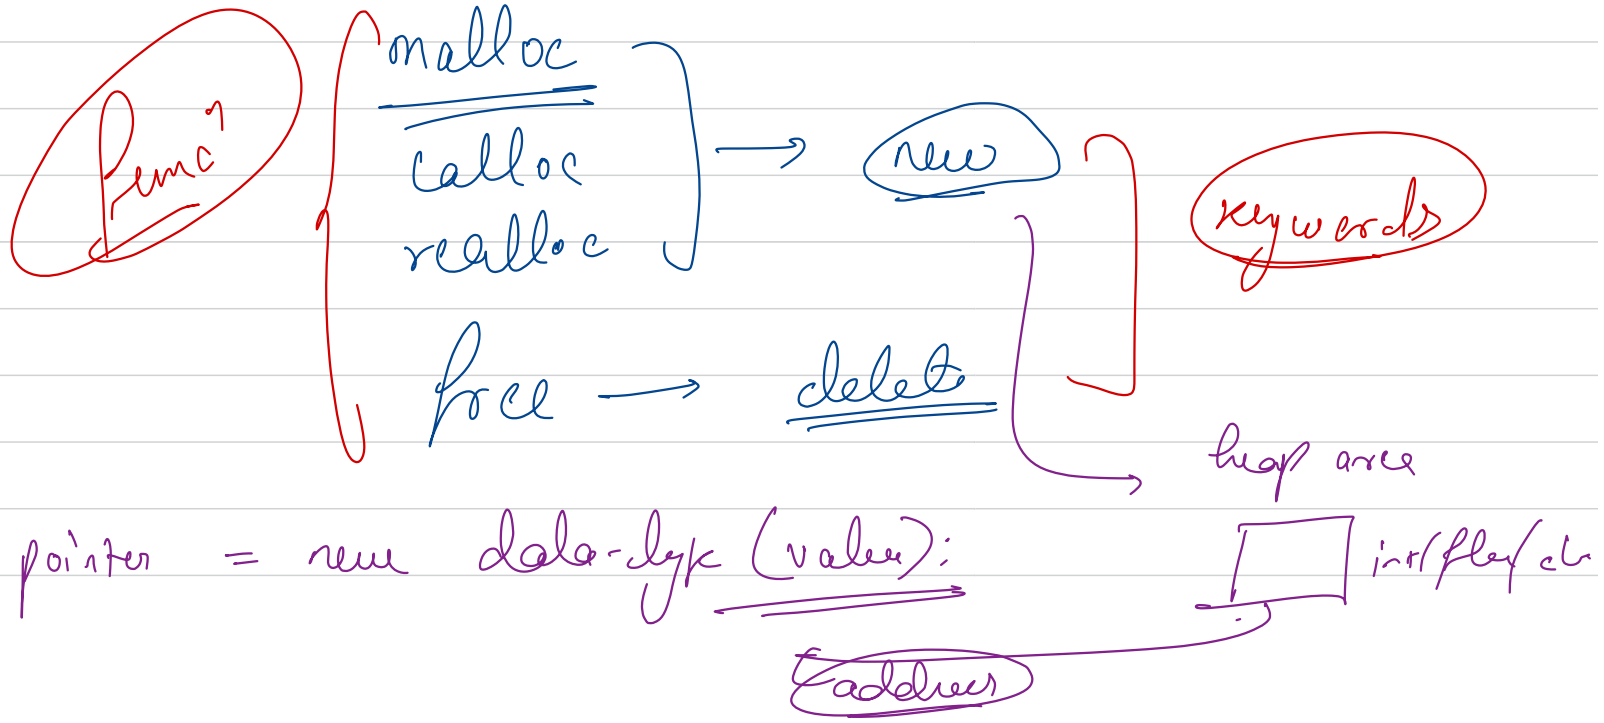 malloc
calloc → new
realloc
keywords
free → delete
heap area
pointer = new data-type (value);
int/
address